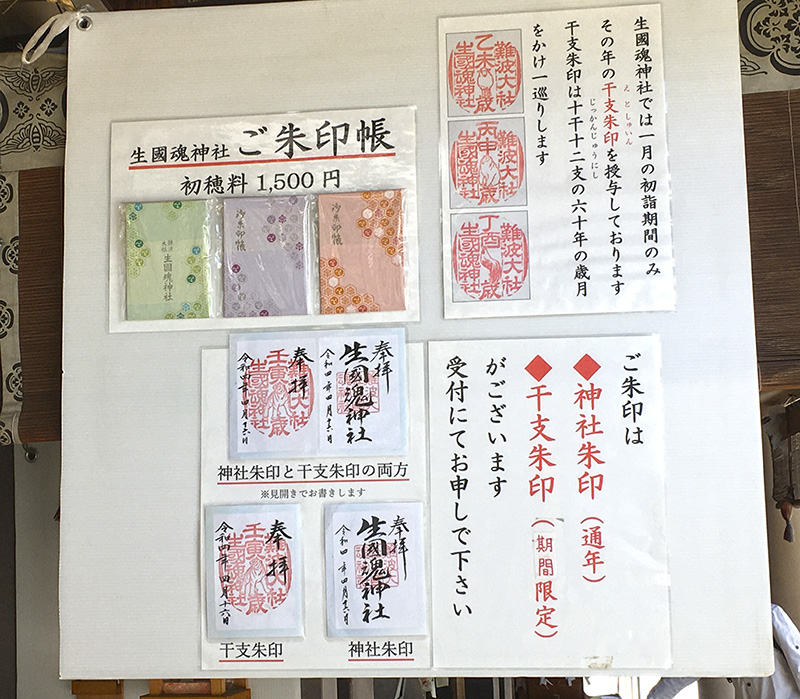 生國魂神社 ご朱印帳
初穂料 1,500 円
生國魂神社
御朱印帳
御朱印帳
生國魂神社では一月の初詣期間のみ
その年の干支朱印を授与しております
えとしゅいん
干支朱印は十干十二支の六十年の歳月
じっかんじゅうにし
をかけ一巡りします
難波大社
乙未歳
生國魂神社
難波大社
丙申歳
生國魂神社
難波大社
丁酉歳
生國魂神社
奉拝
生國魂神社
令和四年四月十六日
奉拝
難波大社
壬寅歳
生國魂神社
令和四年四月十六日
神社朱印と干支朱印の両方
※見開きでお書きします
奉拝
難波大社
壬寅歳
生國魂神社
令和四年四月十六日
干支朱印
奉拝
生國魂神社
令和四年四月十六日
神社朱印
ご朱印は
◆神社朱印(通年)
◆干支朱印(期間限定)
がございます
受付にてお申し下さい